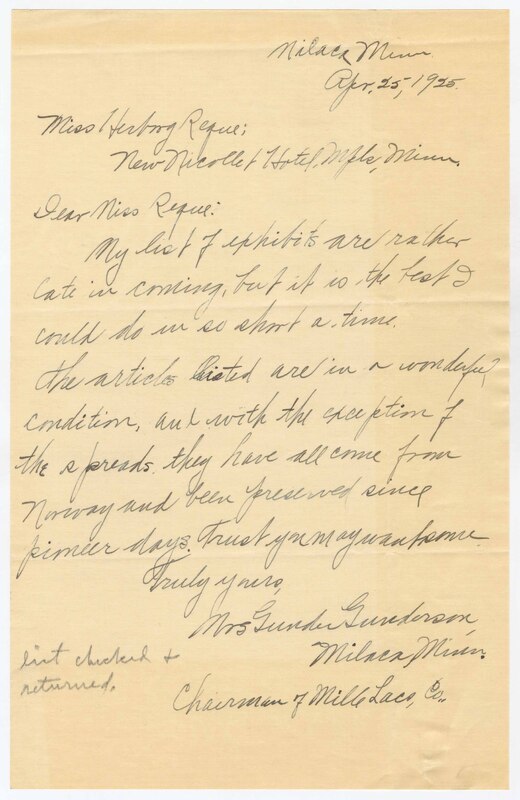 Milaca Minn.
Apr. 25, 1925.
Miss Herborg Reque;
New Nicollet Hotel, Mpls, Minn.
Dear Miss Reque:
My list of exhibits are rather
late in coming, but it is the best I
could do in so short a time.
The articles listed are in a wonderful
condition, and with the exception of
the spreads they have all come from
Norway and been preserved since
pioneer days. Trust you may want some.
Truly yours,
Mrs Gunder Gunderson,
Milaca, Minn.
list checked &
returned.
Chairman of Mille Lacs, Co.